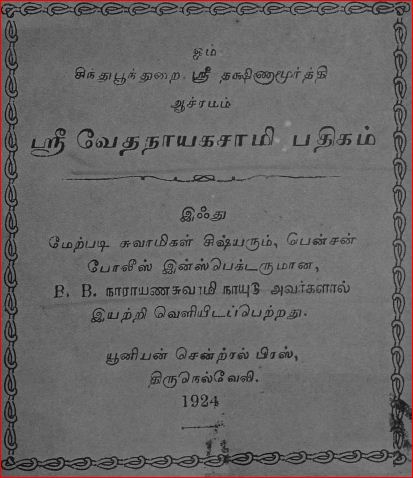 ஓம்
சிந்துபூந்துறை, ஸ்ரீ தக்ஷிணாமூர்த்தி
ஆச்ரயம்
ஸ்ரீ வேதநாயகசாமி பதிகம்
இஃது
மேற்படி சுவாமிகள் சிஷ்யரும், பென்சன்
போலீஸ் இன்ஸ்பெக்டருமான,
P. B. நாராயணசுவாமி நாயுடு அவர்களால்
இயற்றி வெளியிடப்பெற்றது.
யூனியன் சென்ற்ரல் பிரஸ்,
திருநெல்வேலி.
1924